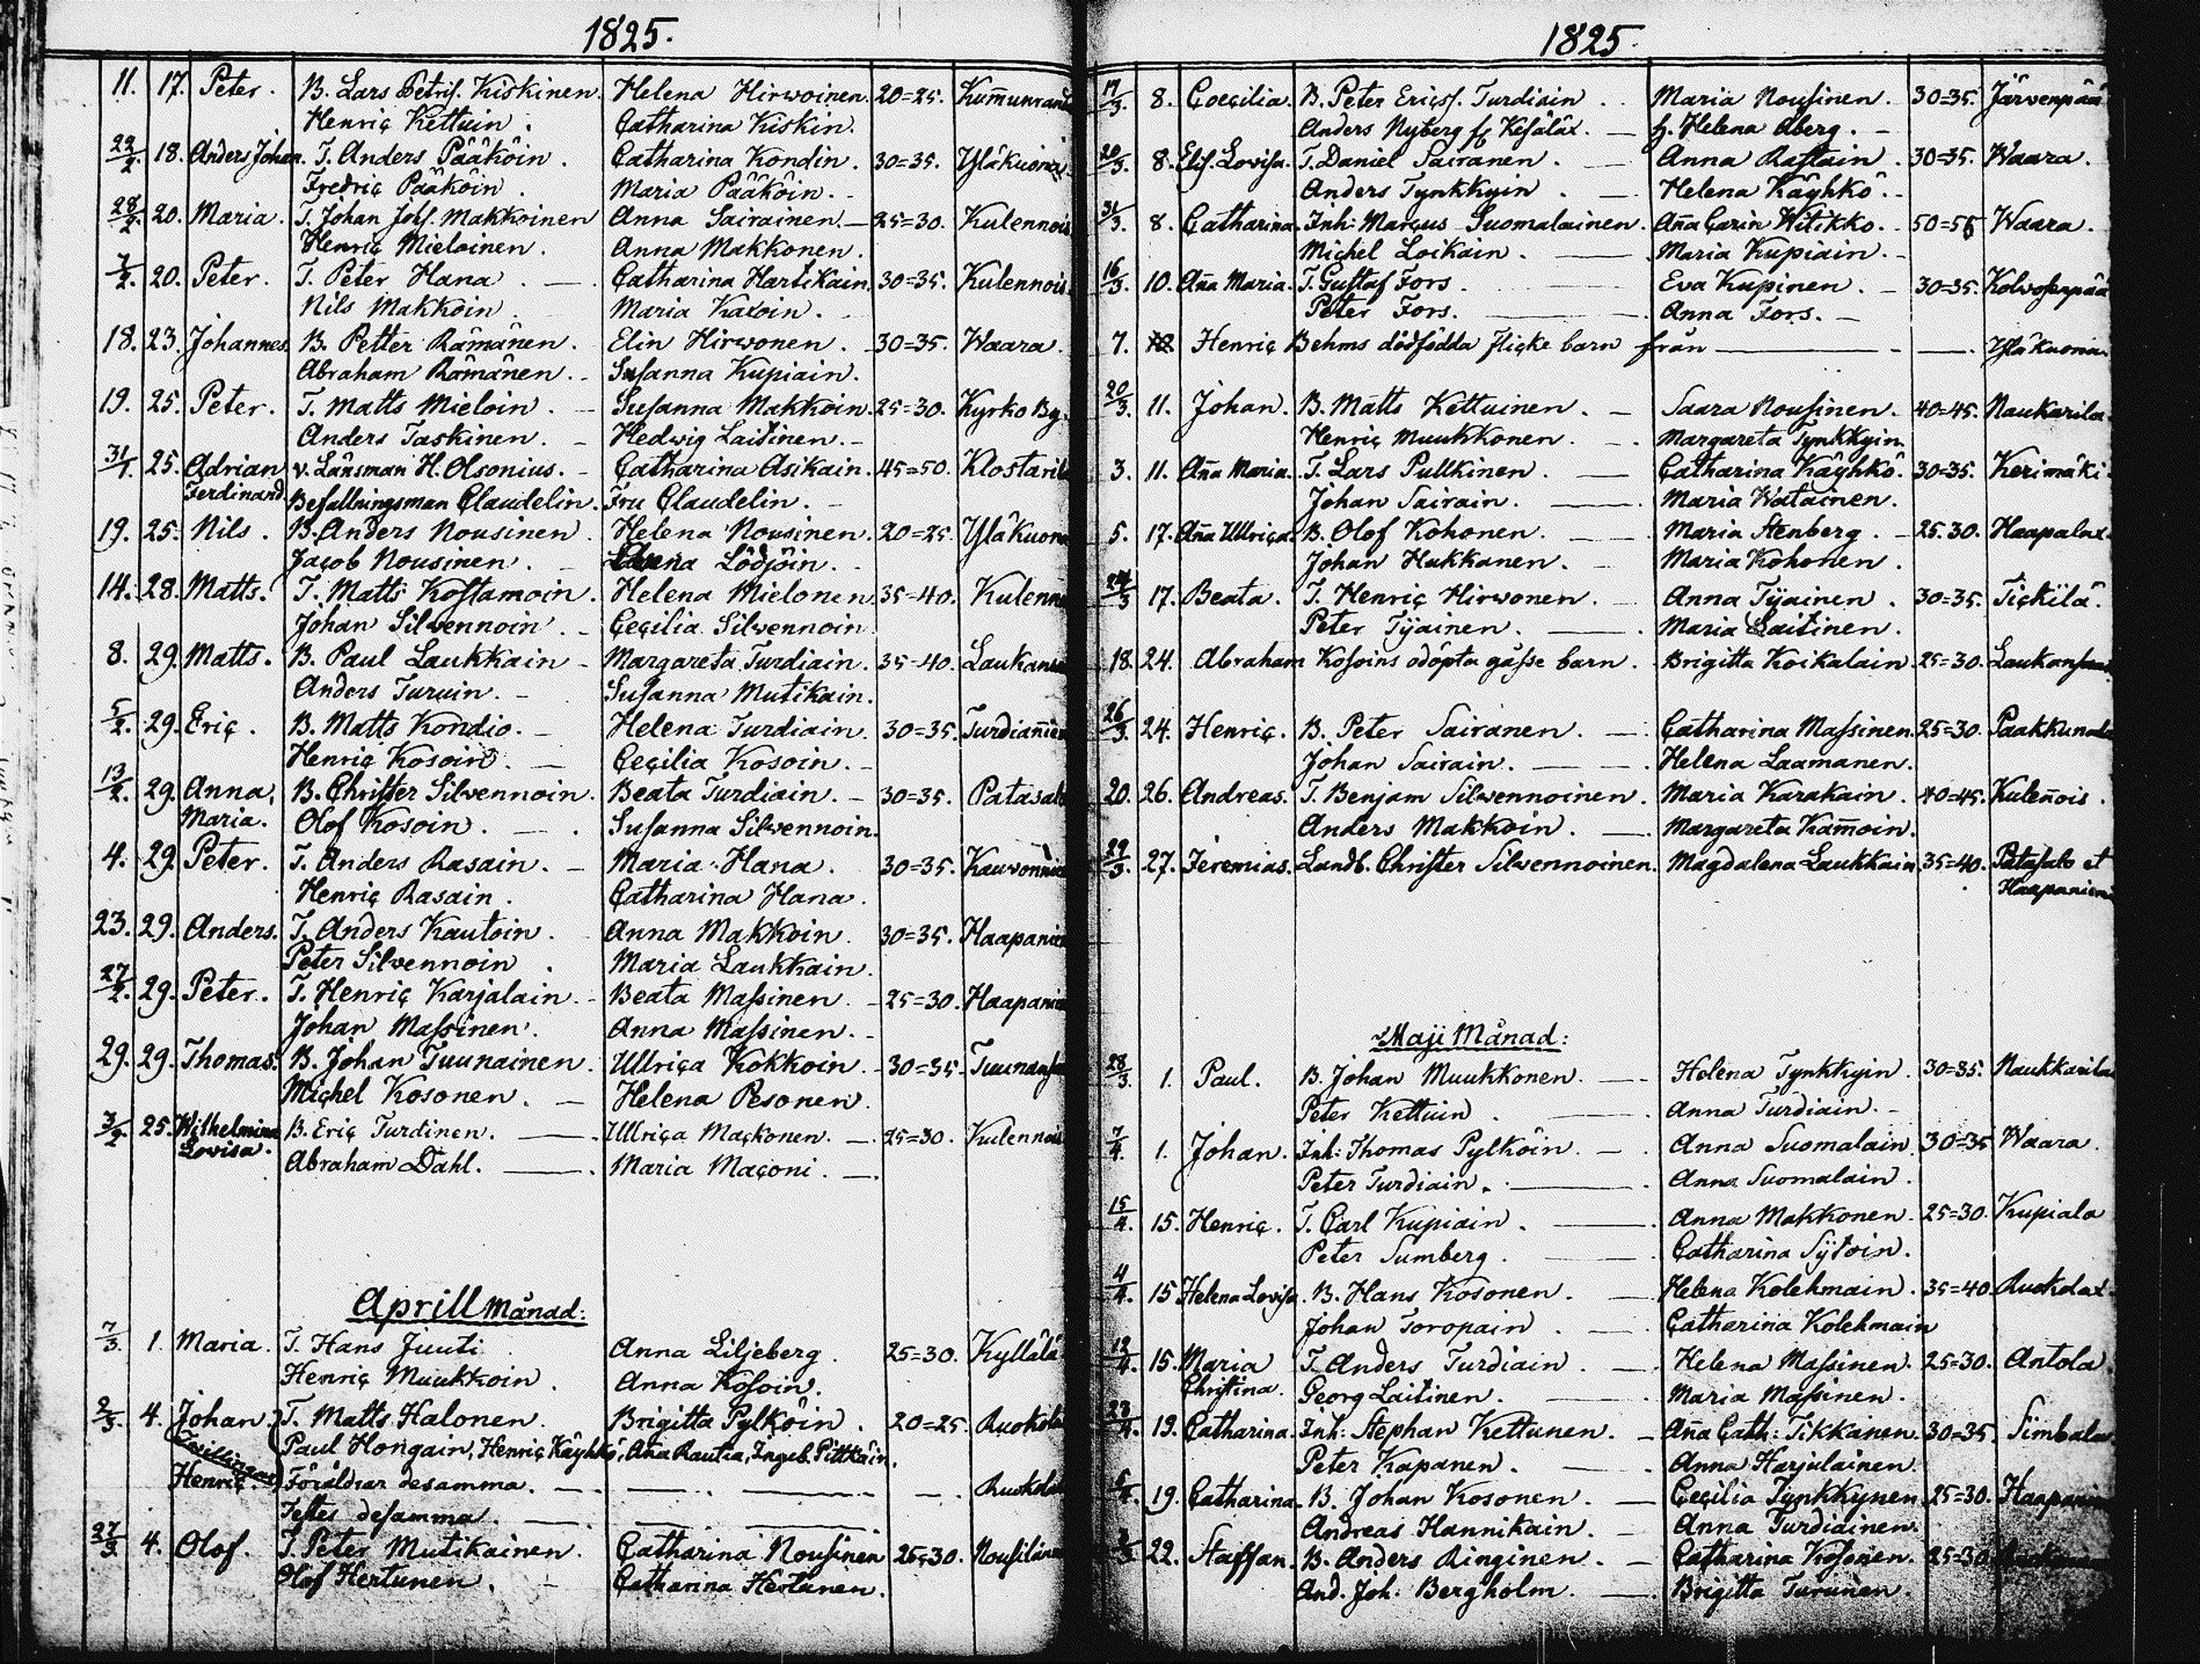 1825.
11. 17. Peter. B. Lars Petriſ. Kiskinen. Helena Hirwoinen. 20=25.
Henric Kettuin. Catharina Kiskin.
22/2. 18. Anders Johan. T. Anders Pääköin. Catharina Kondin. 30=35. Yläkuona
Fredric Pääköin. Maria Pääköin.
28/2. 20. Maria. T. Johan Johſ. Makkoinen Anna Sairainen. 25=30. Kulennois
Henric Mieloinen. Anna Makkonen.
7/2. 20. Peter. T. Peter Hana. Catharina Hartikain. 30=35. Kulennois.
Nils Makkoin. Maria Kaxoin.
18. 23. Johannes. B. Petter Rämänen. Elin Hirwonen. 30=35. Waara.
Abraham Rämänen. Suſanna Kupiain.
19. 25. Peter. T. Matts Mieloin. Suſanna Makkoin. 25=30. Kyrko By.
Anders Taskinen. Hedwig Laitinen.
31/1. 25. Adrian v. Länsman H. Olsonius. Catharina Asikain. 45=50. Klostaril
Ferdinand. Befallningsman Claudelin. Fru Claudelin.
19. 25. Nils. B. Anders Nousinen. Helena Nousinen. 20=25. Yläkuona
Jacob Nousinen. Lödjöin.
14. 28. Matts. T. Matts Koſtamoin. Helena Mielonen. 35=40. Kulenno
Johan Silvennoin. Cecilia Silvennoin.
8. 29. Matts. B. Paul Laukkain Margareta Turdiain. 35-40. Laukansa
Anders Turuin. Suſanna Mutikain.
5/2. 29. Eric. B. Matts Kondio. Helena Turdiain. 30=35. Turdianie
Henric Kosoin. Cecilia Kosoin.
13/2. 29. Anna, B. Chriſter Silvennoin. Beata Turdiain. 30=35. Patasal
Maria. Olof Kosoin. Suſanna Silvennoin.
4. 29. Peter. T. Anders Rasain. Maria Hana. 30=35. Kauvonnie
Henric Rasain. Catharina Hana.
23. 29. Anders. T. Anders Kautoin. Anna Makkoin. 30=35. Haapanie
Peter Silvennoin. Maria Laukkain.
27/2. 29. Peter. T. Henric Karjalain. Beata Maſsinen. 25=30. Haapanie
Johan Maſsinen. Anna Maſsinen.
29. 29. Thomas. B. Johan Tuunainen. Ullrica Kokkoin. 30=35. Tuunanſa
Michel Kosonen. Helena Pesonen.
3/2. 25. Wilhelmina B. Eric Turdinen. Ullrica Mackonen. 25=30. Kulennois
Lovisa. Abraham Dahl. Maria Maconi.
Aprill Månad:
7/3. 1. Maria. T. Hans Juuti Anna Liljeberg. 25=30. Kyllälä
Henric Muukkoin. Anna Koſoin.
2/3. 4. Johan. T. Matts Halonen. Brigitta Pylköin. 20=25. Ruokola
Tvillingar Paul Hongain, Henric Käyhkö, Aña Rautia, Ingeb. Pittkäin.
Henric. Föräldrar desamma. Ruokola
Teſtes deſamma.
27/3. 4. Olof. T. Peter Mutikainen. Catharina Nouſinen 25=30. Nouſiläm
Olof Hertunen. Catharina Hertunen.
1825
17/3. 8. Coecilia. B. Peter Ericsſ. Turdiain. Maria Nouſinen. 30=35. Järvenpää
Anders Nyberg fr Keſälax. h. Helena Åberg.
20/3. 8. Eliſ. Loviſa. T. Daniel Sairanen. Anna Raſtain. 30=35. Waara.
Anders Tynkkyin. Helena Käyhkö.
31/3. 8. Catharina. Inh: Marcus Suomalainen. Aña Carin Witikko. 50=55 Waara.
Michel Loikain. Maria Kupiain.
16/3. 10. Aña Maria. T. Guſtaf Fors. Eva Kupinen. 30=35. Kolvoſenpää
Peter Fors. Anna Fors.
7. 10. Henric Behms dödfödda flicke barn från Yläkuona.
20/3. 11. Johan. B. Matts Kettuinen. Saara Nouſinen. 40=45. Naukarila.
Henric Muukkonen. Margareta Tynkkyin.
3. 11. Aña Maria. T. Lars Pullkinen. Catharina Käyhkö. 30=35. Kerimäki.
Johan Sairain. Maria Watainen.
5. 17. Aña Ullrica. B. Olof Kohonen. Maria Stenberg. 25.30. Haapalax.
Johan Hukkanen. Maria Kohonen.
24/3 17. Beata. T. Henric Hirwonen. Anna Tyainen. 30=35. Tickilä.
Peter Tyainen. Maria Laitinen.
18. 24. Abraham Koſoins odöpta gåſse barn. Brigitta Koikalain. 25=30. Laukanſaari
26/3. 24. Henric. B. Peter Sairanen. Catharina Maſsinen. 25=30. Paakkunala
Johan Sairain. Helena Laamanen.
20. 26. Andreas. T. Benjam Silvennoinen. Maria Karakain. 40=45. Kuleñois.
Anders Makkoin. Margareta Kam̄oin.
29/3. 27. Jeremias. Landb. Chriſter Silvennoinen. Magdalena Laukkain. 35=40. Pataſalo et
Haapaniemi
Maji Månad:
28/3. 1. Paul. B. Johan Muukkonen. Helena Tynkkyin. 30=35. Naukkarila
Peter Kettuin. Anna Turdiain.
7/4. 1. Johan. Inh: Thomas Pylköin. Anna Suomalain. 30=35 Waara.
Peter Turdiain. Anna Suomalain.
15/4. 15. Henric. T. Carl Kupiain. Anna Makkonen. 25=30. Kupiala
Peter Sumberg. Catharina Sytoin.
4/4. 15 Helena Loviſa. B. Hans Kosonen. Helena Kolehmain. 35=40. Ruokolax.
Johan Toropain. Catharina Kolehmain
12/4. 15. Maria T. Anders Turdiain. Helena Maſsinen. 25=30. Antola
Chriſtina. Georg Laitinen. Maria Maſsinen.
23/4. 19. Catharina. Inh: Stephan Kettunen. Aña Cath: Tikkainen. 30=35. Simbala
Peter Kapanen. Anna Harjulainen.
5/4. 19. Catharina. B. Johan Kosonen. Cecilia Tynkkynen. 25=30. Haapanie
Andreas Hannikain. Anna Turdiainen.
22. Staffan. B. Anders Ringinen. Catharina Koſonen. 25=30
And. Joh. Bergholm. Brigitta Turunen.